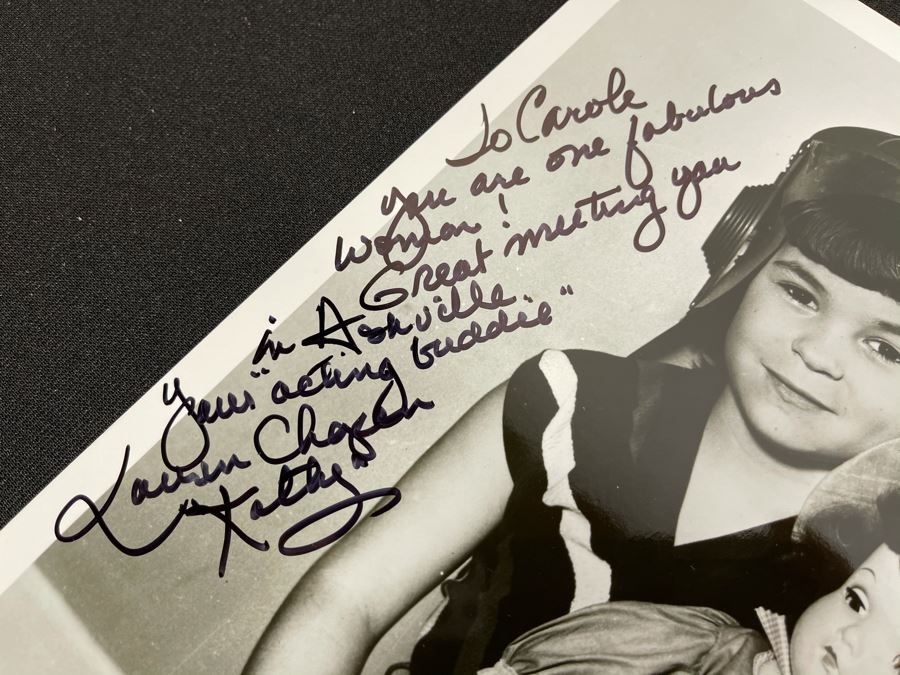 To Carole
You are one fabulous
Woman!
Great meeting you
in Ashville.
Your "acting buddie"
Lauren Chapin
"Kathy"